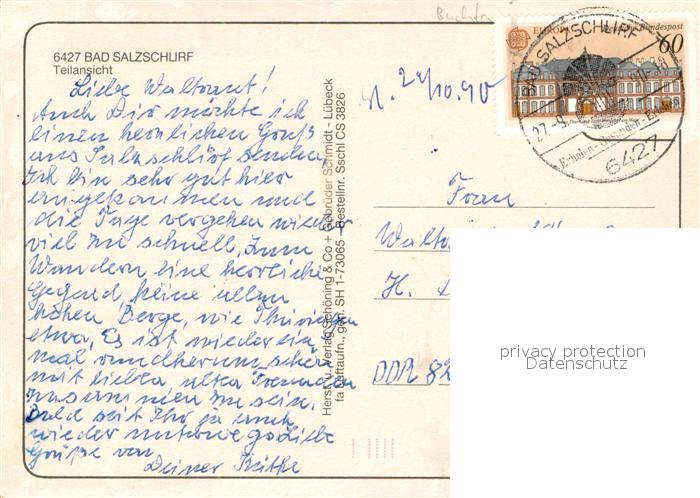 6427 BAD SALZSCHLIRF
Teilansicht
Liebe Waltraut!
Auch Dir möchte ich
einen herrlichen Gruß
aus Salzschlirf senden,
Ich bin sehr gut hier
angekommen und
die Tage vergehen wieder
viel zu schnell, Zum
Wandern eine herrliche
Gegend, keine allzu
hohen Berge, wie Thüringen
etwa, Es ist wieder ein-
mal rundherum schön
mit lieben, alten Freunden
zusammen zu sein.
Bald seit Ihr ja auch
wieder unterwegs Liebe
Grüße von
Deiner Käthe
Herst. u. Verlag Schöning & Co + Gebrüder Schmidt - Lübeck
fa Luftaufn., gen. SH 1-73065 Bestellnr. Sschl CS 3826
24/10.90
EUROPA Deutsche Bundespost
60
BAD SALZSCHLIRF
27.-9.
6427
Frau
H.
DDR 82
privacy protection
Datenschutz